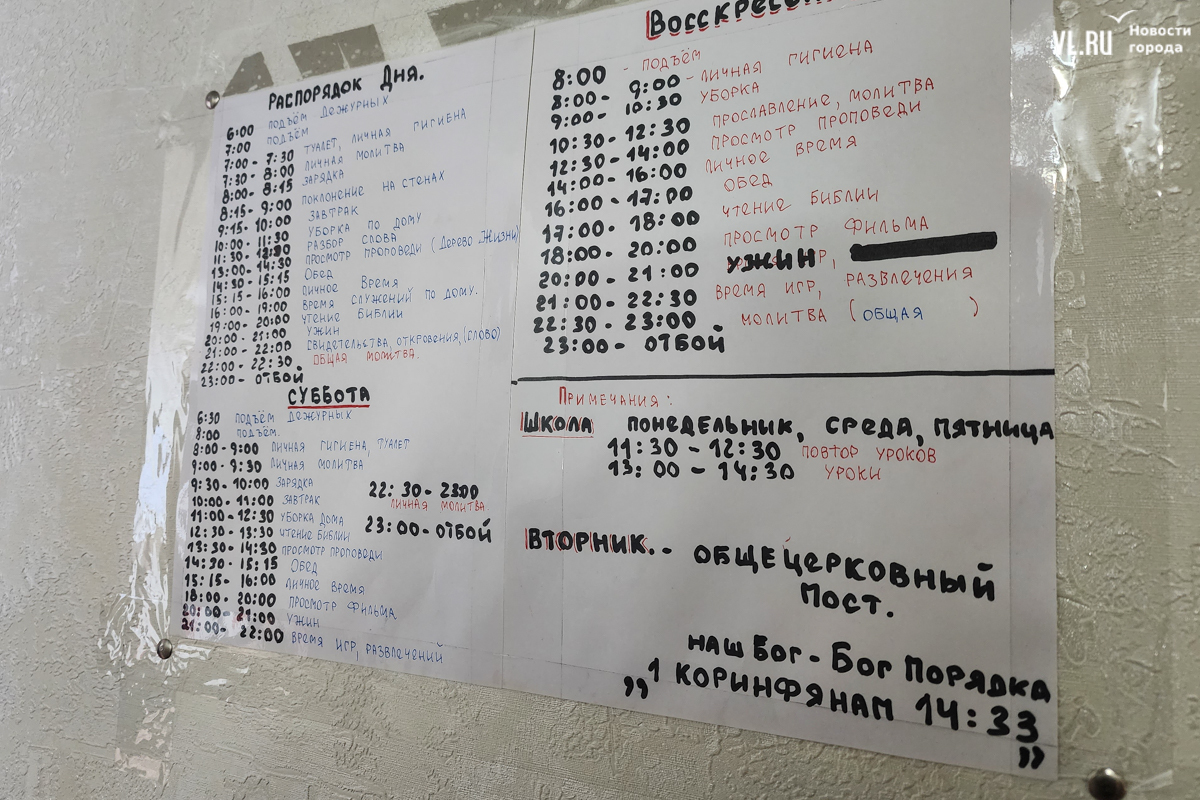 РАСПОРЯДОК ДНЯ.
6:00 ПОДЪЁМ ДЕЖУРНЫХ
7:00 ПОДЪЁМ
7:00 - 7:30 ТУАЛЕТ, ЛИЧНАЯ ГИГИЕНА
7:30 - 8:00 ЛИЧНАЯ МОЛИТВА
8:00 - 8:15 ЗАРЯДКА
8:15 - 9:00 ПОКЛОНЕНИЕ НА СТЕНАХ
9:15 - 10:00 ЗАВТРАК
10:00 - 11:30 УБОРКА ПО ДОМУ
11:30 - РАЗБОР СЛОВА
13:00 - 14:30 ПРОСМОТР ПРОПОВЕДИ (ДЕРЕВО ЖИЗНИ)
14:30 - 15:15 ОБЕД
15:15 - 16:00 ЛИЧНОЕ ВРЕМЯ
16:00 - 19:00 ВРЕМЯ СЛУЖЕНИЙ ПО ДОМУ.
19:00 - 20:00 ЧТЕНИЕ БИБЛИИ
20:00 - 21:00 УЖИН
21:00 - 22:00 СВИДЕТЕЛЬСТВА, ОТКРОВЕНИЯ, (СЛОВО)
22:00 - 22:30. ОБЩАЯ МОЛИТВА.
23:00 - ОТБОЙ
СУББОТА
6:30 ПОДЪЁМ ДЕЖУРНЫХ
8:00 ПОДЪЁМ.
8:00 - 9:00 ЛИЧНАЯ ГИГИЕНА, ТУАЛЕТ
9:00 - 9:30 ЛИЧНАЯ МОЛИТВА
9:30 - 10:00 ЗАРЯДКА
10:00 - 11:00 ЗАВТРАК
11:00 - 12:30 УБОРКА ДОМА
12:30 - 13:30 ЧТЕНИЕ БИБЛИИ
13:30 - 14:30 ПРОСМОТР ПРОПОВЕДИ
14:30 - 15:15 ОБЕД
15:15 - 16:00 ЛИЧНОЕ ВРЕМЯ
18:00 - 20:00 ПРОСМОТР ФИЛЬМА
20:00 - 21:00 УЖИН
21:00 - 22:00 ВРЕМЯ ИГР, РАЗВЛЕЧЕНИЙ
22:30 - 23:00
ЛИЧНАЯ МОЛИТВА.
23:00 - ОТБОЙ
8:00 - ПОДЪЁМ
8:00 - 9:00 - ЛИЧНАЯ ГИГИЕНА
9:00 - 10:30 УБОРКА
10:30 - 12:30 ПРОСЛАВЛЕНИЕ, МОЛИТВА
12:30 - 14:00 ПРОСМОТР ПРОПОВЕДИ
14:00 - 16:00 ЛИЧНОЕ ВРЕМЯ
16:00 - 17:00 ОБЕД
17:00 - 18:00 ЧТЕНИЕ БИБЛИИ
18:00 - 20:00 ПРОСМОТР ФИЛЬМА
20:00 - 21:00 УЖИН
21:00 - 22:30 ВРЕМЯ ИГР, РАЗВЛЕЧЕНИЯ
22:30 - 23:00 МОЛИТВА (ОБЩАЯ )
23:00 - ОТБОЙ
ПРИМЕЧАНИЯ:
ШКОЛА ПОНЕДЕЛЬНИК, СРЕДА, ПЯТНИЦА
11:30 - 12:30 ПОВТОР УРОКОВ
13:00 - 14:30 УРОКИ
ВТОРНИК. - ОБЩЕЦЕРКОВНЫЙ
ПОСТ.
НАШ БОГ - БОГ ПОРЯДКА
„1 КОРИНФЯНАМ 14:33"
VL.RU Новости
города